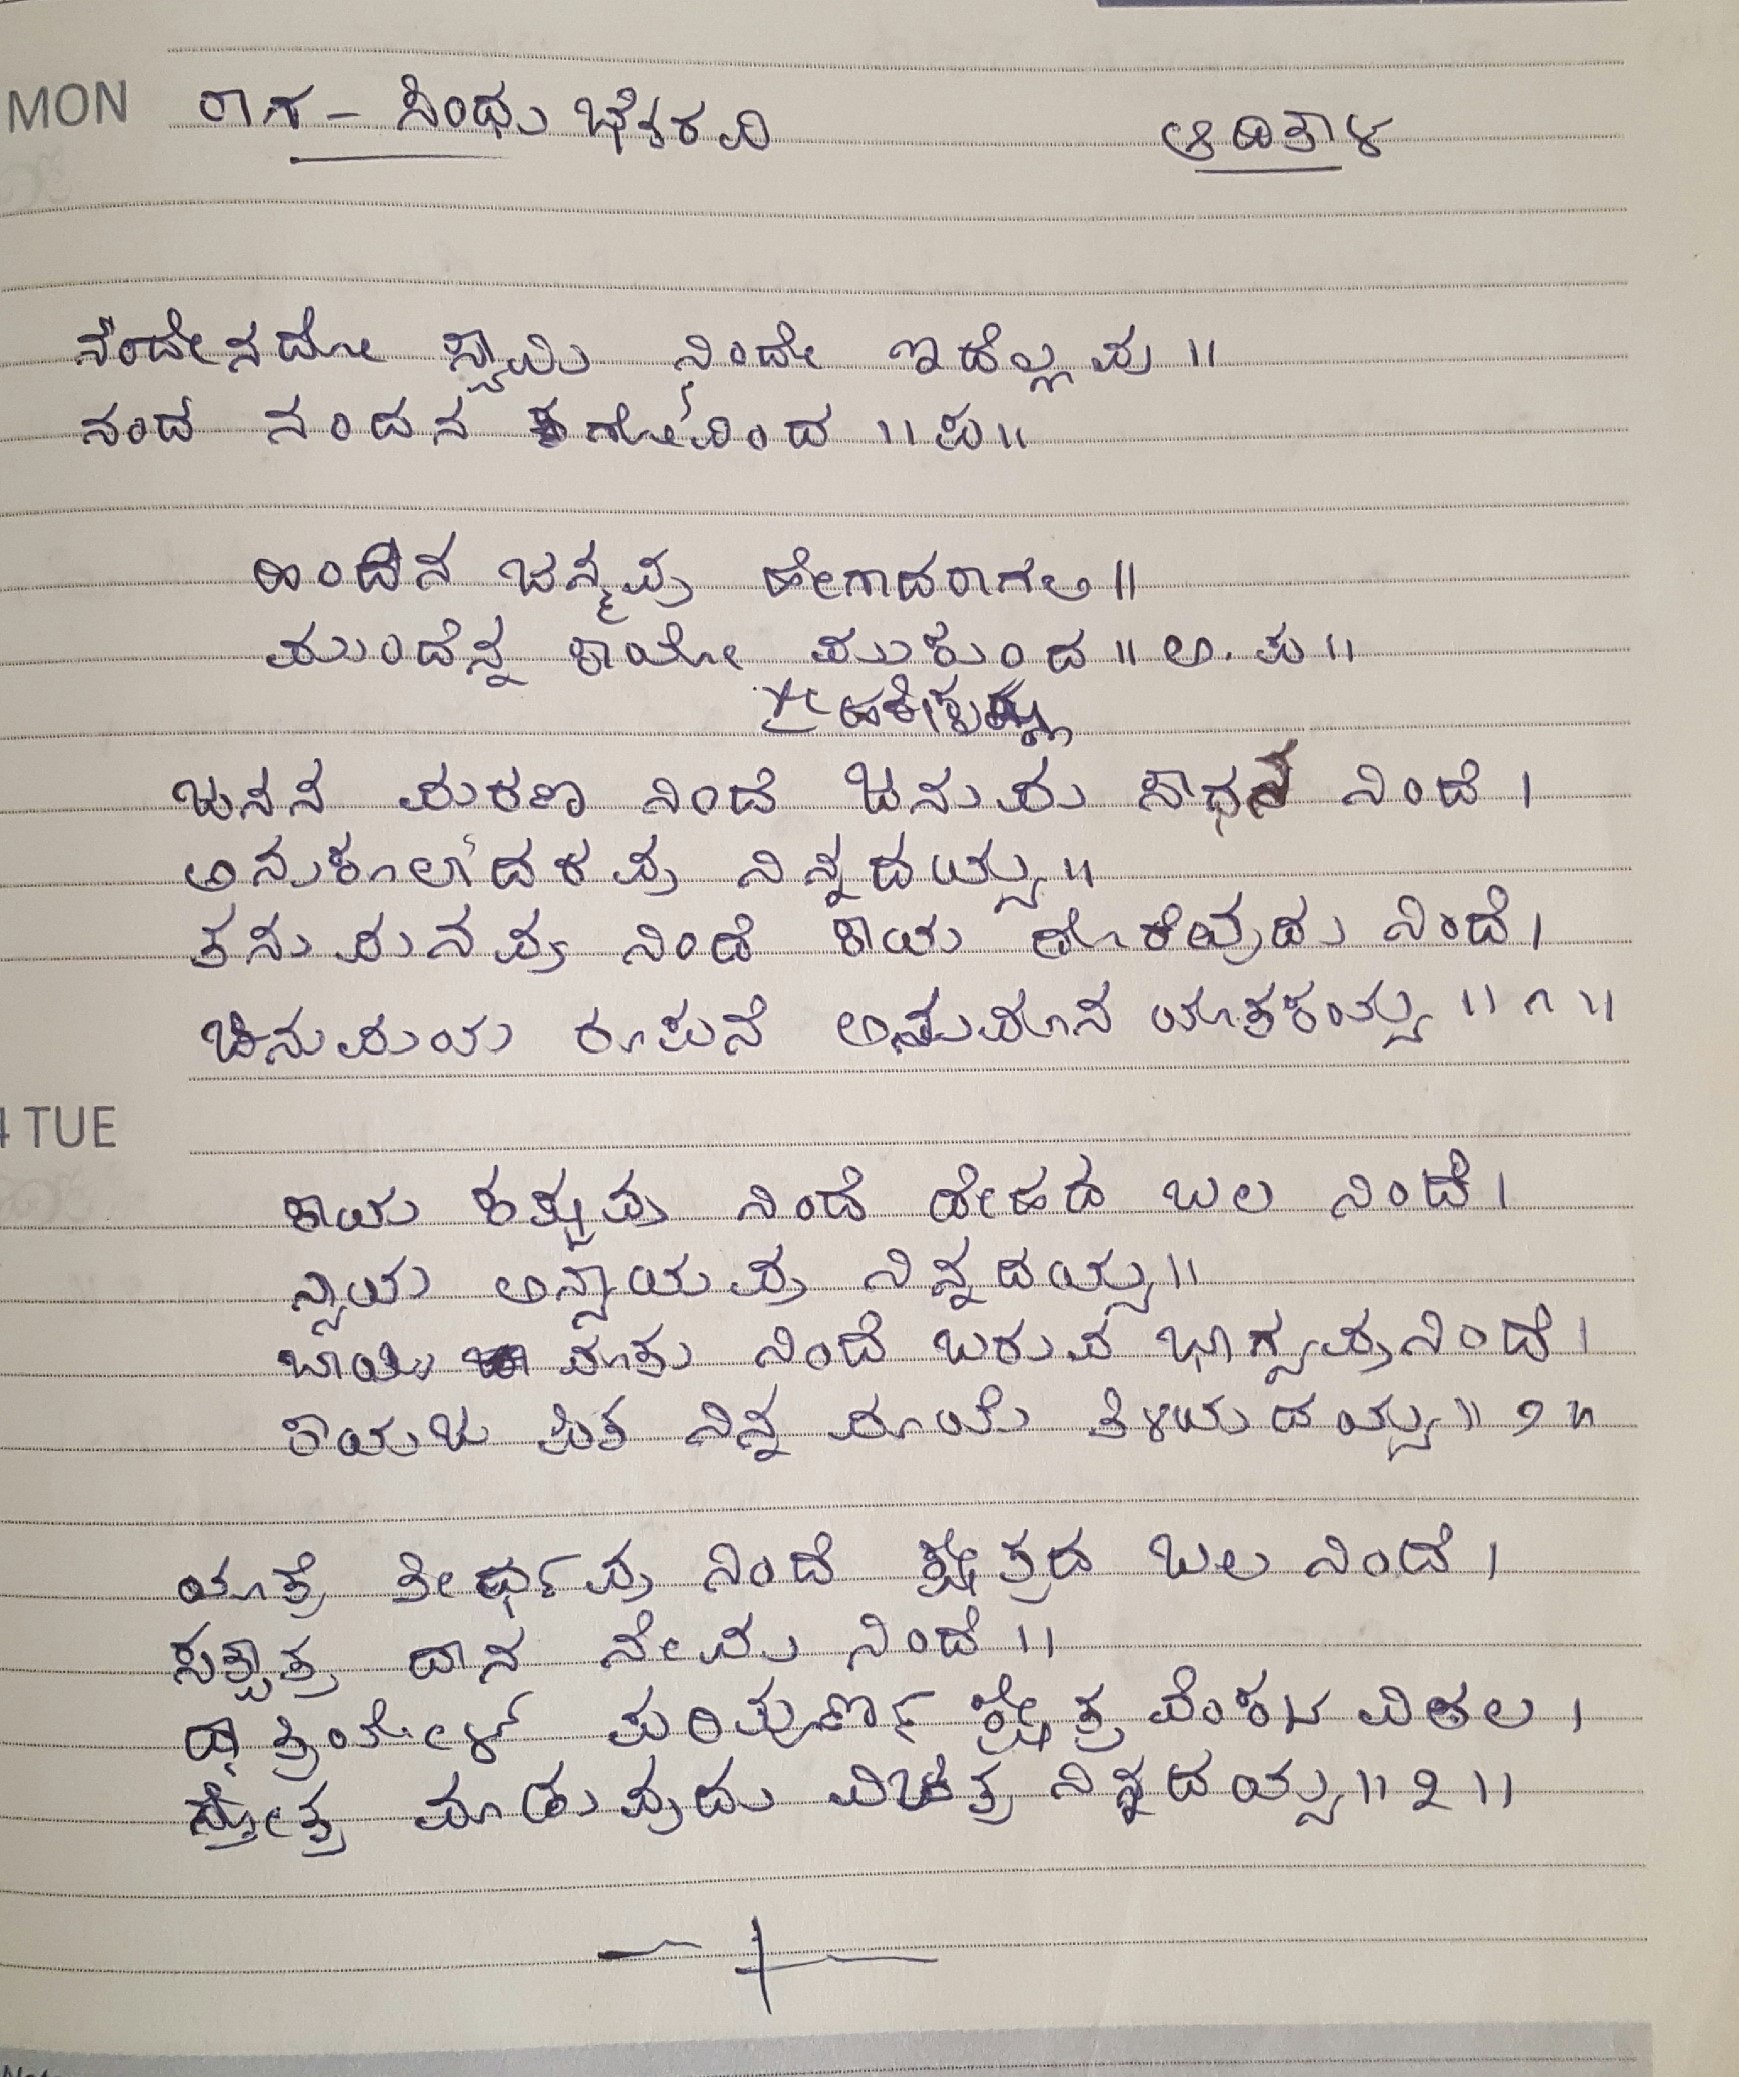 MON ರಾಗ - ಸಿಂಧು ಭೈರವಿ ಆದಿತಾಳ
ನೊಂದೇನಯೋ ಸ್ವಾಮಿ ನಿಂದೇ ಇದೆಲ್ಲವು ||
ನಂದ ನಂದನ ಗೋವಿಂದ || ಪ ||
ಹಿಂದಿನ ಜನ್ಮವು ಹೇಗಾದರಾಗಲಿ ||
ಮುಂದೆನ್ನ ಕಾಯೋ ಮುಕುಂದ || ಅ. ಪ ||
ಜನನ ಮರಣ ನಿಂದೆ ಜನುಮ ಸಾಧನೆ ನಿಂದೆ |
ಅನುಕೂಲಾದರವು ನಿನ್ನದಯ್ಯ ||
ತನು ಮನವು ನಿಂದೆ ಕಾಯ ದೊರೆವುದು ನಿಂದೆ |
ಚಿನುಮಯ ರೂಪನೆ ಅನುಮಾನ ಯಾತಕಯ್ಯ || ೧ ||
4 TUE
ಕಾಯ ಕತೃವು ನಿಂದೆ ದೇಹದ ಬಲ ನಿಂದೆ |
ನ್ಯಾಯ ಅನ್ಯಾಯವು ನಿನ್ನದಯ್ಯ ||
ಬಾಯಿ ಮಾತು ನಿಂದೆ ಬರುವ ಭಾಗ್ಯವು ನಿಂದೆ |
ಕಾಯಜ ಪಿತ ನಿನ್ನ ಮಾಯೆ ತಿಳಿಯದಯ್ಯ || ೨ ||
ಯಾತ್ರೆ ತೀರ್ಥವು ನಿಂದೆ ಕ್ಷೇತ್ರದ ಬಲ ನಿಂದೆ |
ಸತ್ಪಾತ್ರ ದಾನ ನೇಮ ನಿಂದೆ ||
ಪರಿಪೂರ್ಣ ಕ್ಷೇತ್ರ ವೆಂಕಟ ವಿಠಲ |
ಸ್ತೋತ್ರ ಮಾಡುವುದು ವಿಚಿತ್ರ ನಿನ್ನದಯ್ಯ || ೨ ||